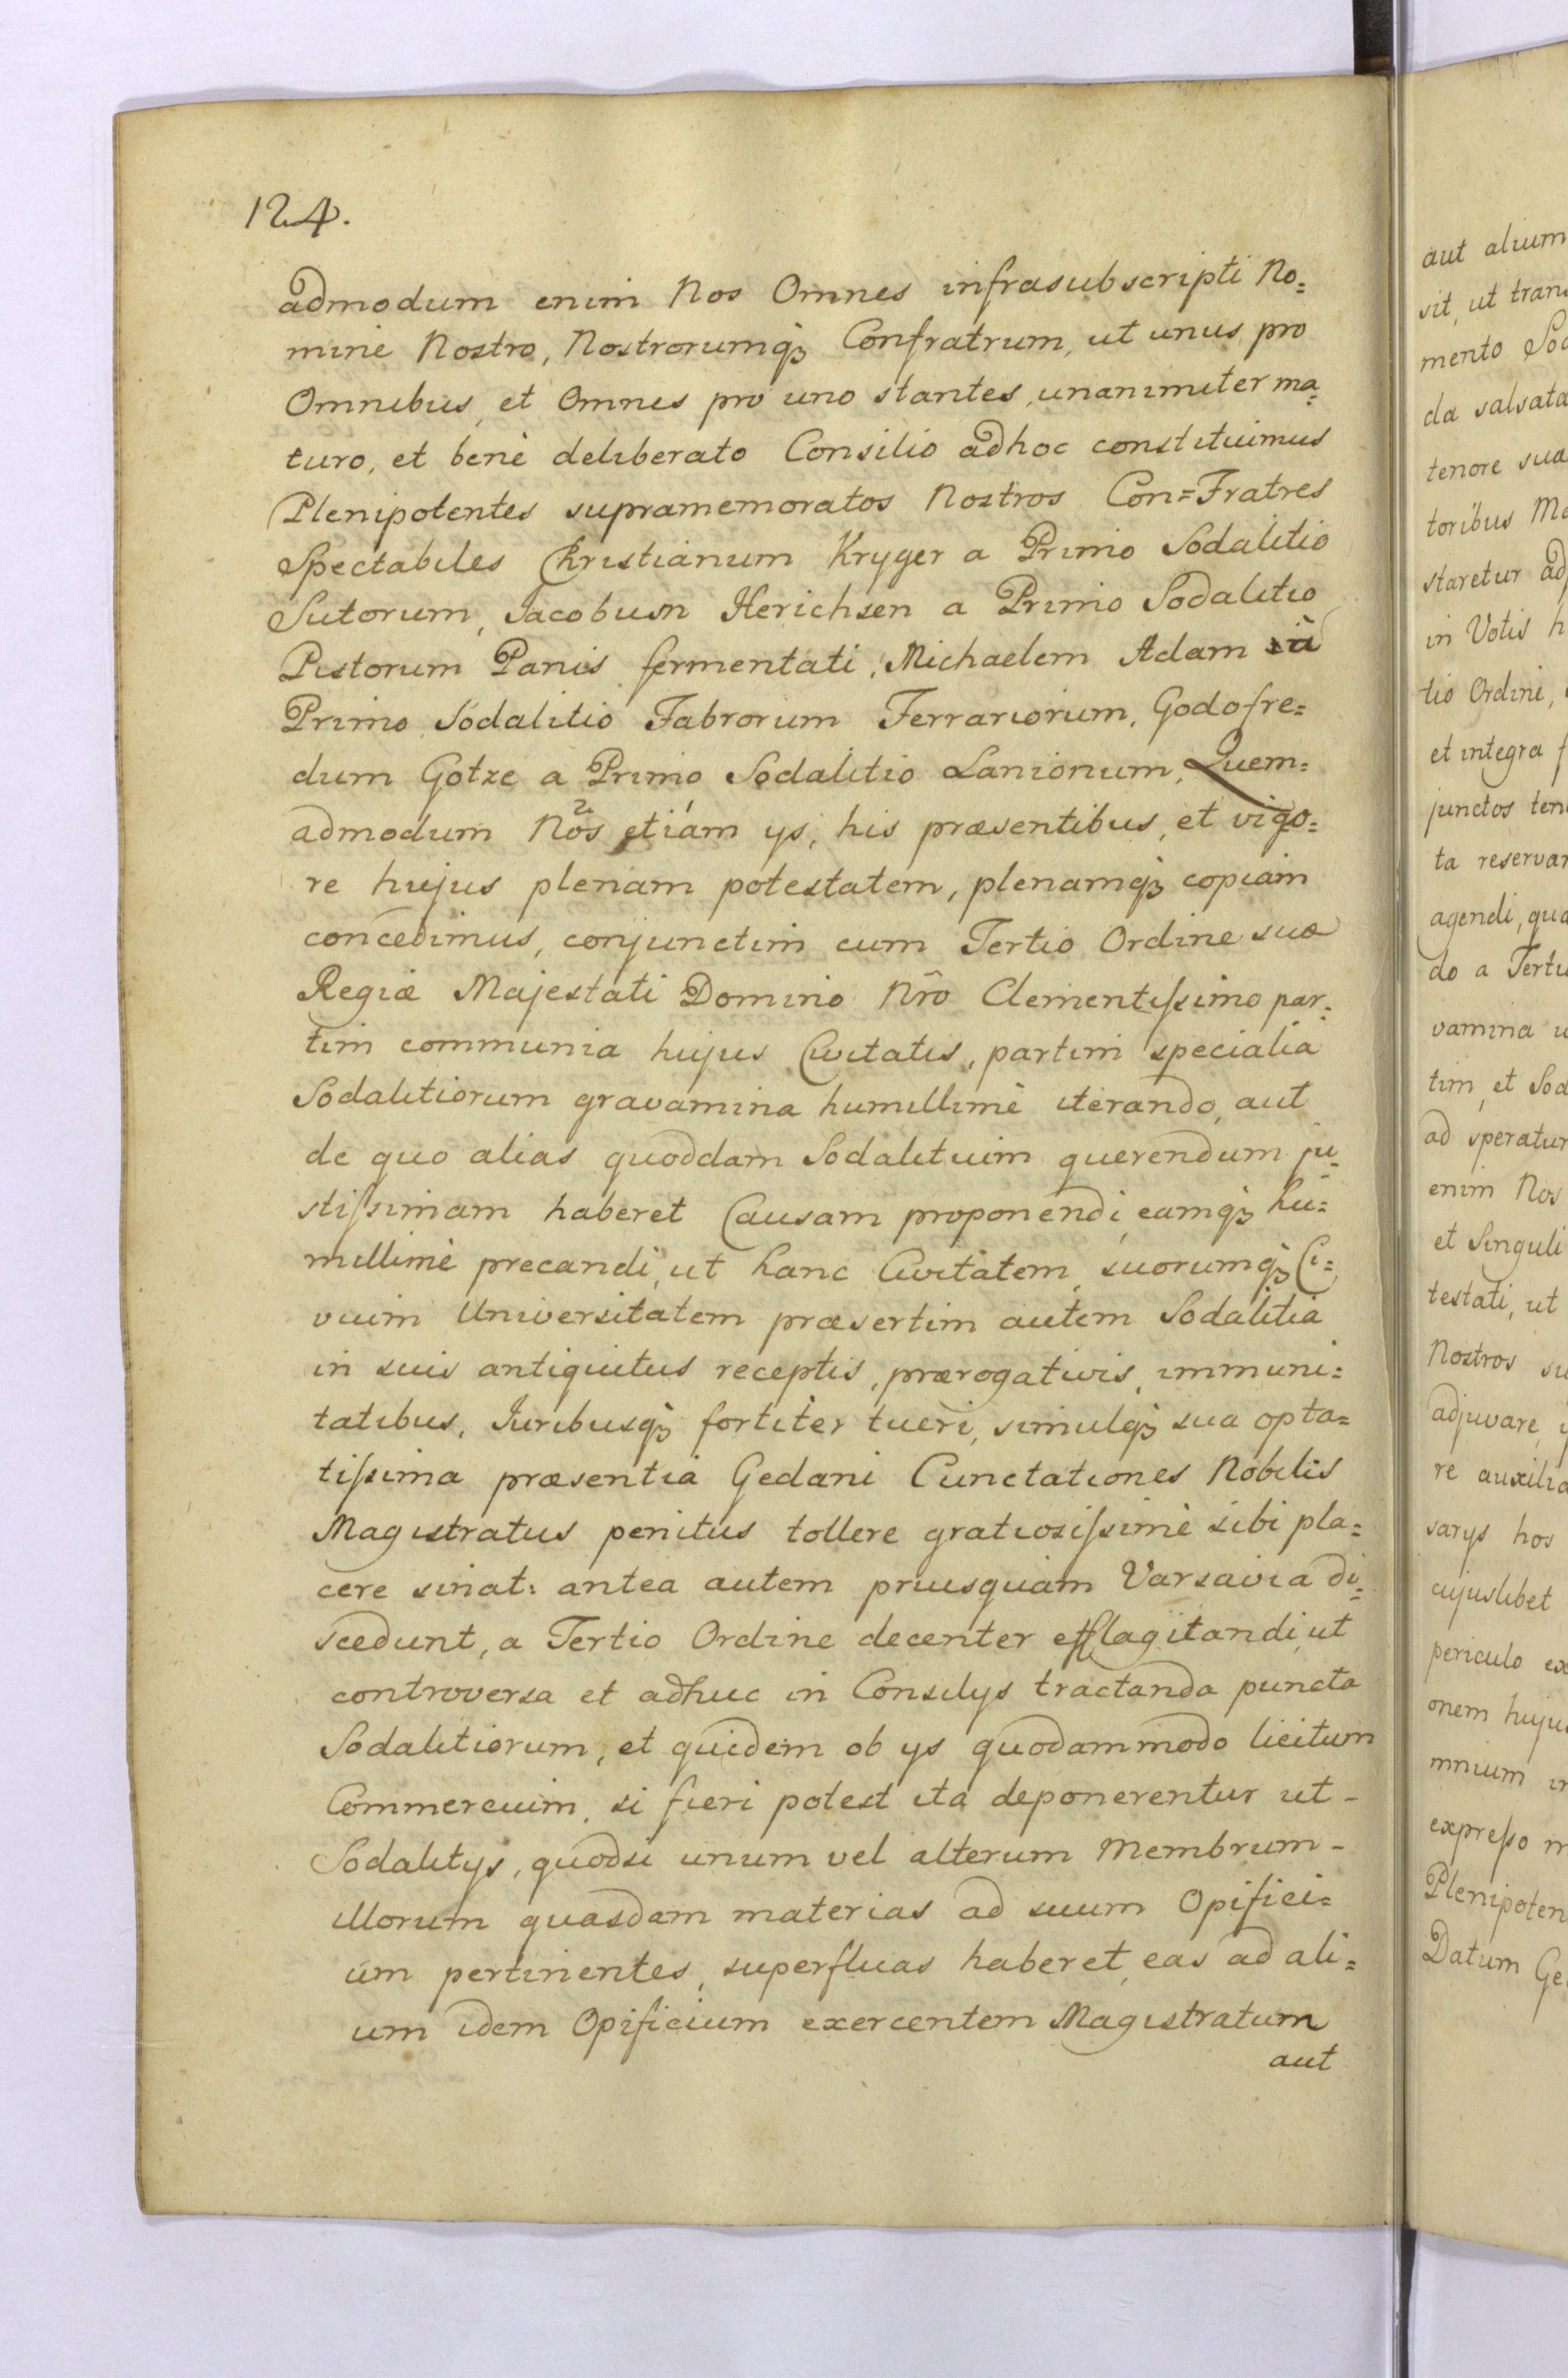 124.
admodum enim Nos Omnes infrasubscripti No=
mine Nostro, Nostrorumqꝫ Confratrum, ut unus pro
Omnibus, et Omnes pro uno stantes, unanimiter ma=
turo, et benè deliberato Consilio adhoc constituimus
Plenipotentes supramemoratos Nostros Con=Fratres
Spectabiles Christianum Kryger a Primo Sodalitio
Sutorum, Jacobum Herichsen a Primo Sodalitio
Pistorum Panis fermentati, Michaelem Adam à
Primo Sodalitio Fabrorum Ferrariorum, Godofre=
dum Gotze a Primo Sodalitio Lanionum, Quem=
admodum Nos etiam ys, his præsentibus, et vigo=
re hujus plenam potestatem, plenamqꝫ copiam
concedimus, conjunctim cum Tertio Ordine suæ
Regiæ Majestati Domino Nr̃o Clementissimo par=
tim communia hujus Civitatis, partim specialia
Sodalitiorum gravamina humillimè iterando, aut
de quo alias quoddam Sodalitium querendum ju=
stissimam haberet Causam proponendi, eamqꝫ hu=
millimè precandi, ut hanc Civitatem, suorumqꝫ Ci=
vium Universitatem præsertim autem Sodalitia
in suis antiquitus receptis, prærogativis, immuni=
tatibus, Juribusqꝫ fortiter tueri, simulqꝫ sua opta=
tissima præsentia Gedani Cunctationes Nobilis
Magistratus penitus tollere gratiosissimè sibi pla=
cere sinat: antea autem priusquam Varsavia di=
scedunt, a Tertio Ordine decenter efflagitandi, ut
controversa et adhuc in Consilys tractanda puncta
Sodalitiorum, et quidem ob ys quodammodo licitum
Commercium, si fieri potest ita deponerentur ut -
Sodalitys, quodsi unum vel alterum Membrum -
illorum quasdam materias ad suum Opifici=
um pertinentes, superfluas haberet, eas ad ali=
um idem Opificium exercentem Magistratum
aut
aut alium
sit, ut
mento
da salsata
tenore sua
toribus
staretur
in Votis
tio Ordini,
et integra
junctos
ta
agendi,
do a
vamina
tim, et
ad
enim Nos
et Singuli
testati, ut
Nostros
adjuvare,
re
sarys hos
cujuslibet
periculo
onem
mnium
expresso
Datum